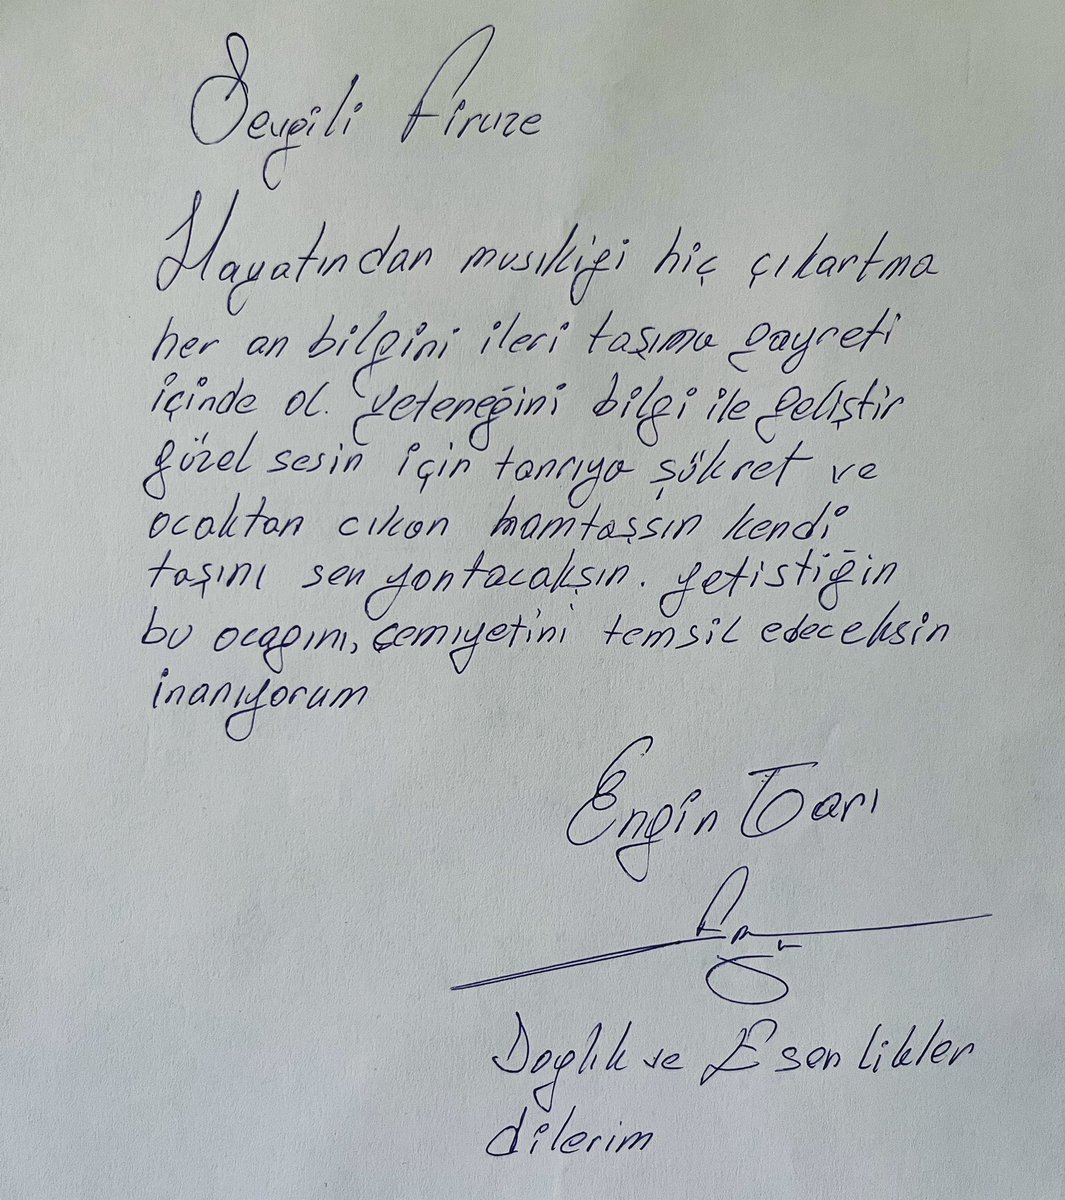 Sevgili Firuze
Hayatından musıkiyi hiç çıkartma
her an bilgini ileri taşıma gayreti
içinde ol. yeteneğini bilgi ile geliştir
güzel sesin için tanrıya şükret ve
ocaktan cıkan hamtaşsın kendi
taşını sen yontacaksın. yetistiğin
bu ocagını, cemiyetini temsil edeceksin
inanıyorum
Engin Tarı
Saglık ve Esenlikler
dilerim